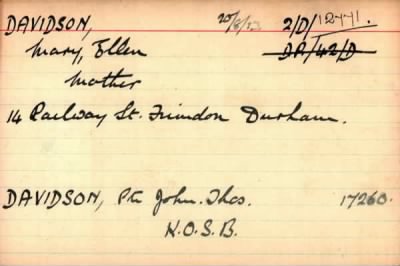 DAVIDSON, 20/8/23 2/D/12441.
Mary, Ellen DA/42/D
Mother
14 Railway St. Trimdon Durham.
DAVIDSON, Pte John. Thos. 17260.
K.O.S.B.